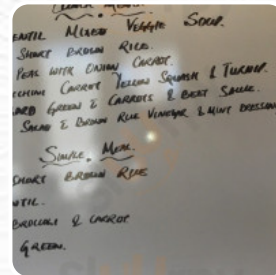 Lunch Menu.
ENTIL MIXED VEGGIE SOUP.
SHORT BROWN RICE.
PEAS WITH ONION CARROT.
CCHINI CARROT YELLOW SQUASH & TURNIP.
ARD GREEN & CARROTS & BEET SAUCE.
SALAD & BROWN RICE VINEGAR & MINT DRESSIN
SIMPLE. MEAL.
SHORT BROWN RICE
NTIL.
BROCCOLI & CARROT
GREEN.